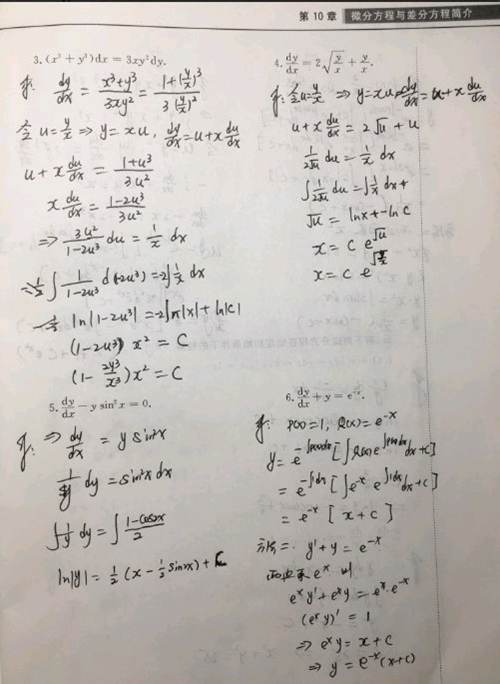 第 10 章 微分方程与差分方程简介
3. (x³ + y³)dx = 3xy²dy.
解: dy/dx = (x³+y³)/(3xy²) = (1+(y/x)³)/(3(y/x)²)
令 u = y/x ⇒ y = xu, dy/dx = u + x du/dx
u + x du/dx = (1+u³)/(3u²)
x du/dx = (1-2u³)/(3u²)
⇒ 3u²/(1-2u³) du = 1/x dx
ln|1-2u³| = -2ln|x| + ln|C|
(1-2u³) x² = C
(1 - 2y³/x³) x² = C
4. dy/dx = 2√(y/x) + y/x.
解: 令 u = y/x ⇒ y = xu ⇒ dy/dx = u + x du/dx
u + x du/dx = 2√u + u
1/(2√u) du = 1/x dx
∫ 1/(2√u) du = ∫ 1/x dx +
√u = ln x + -ln C
x = C e^√u
x = C e^√(y/x)
5. dy/dx - y sin²x = 0.
解: ⇒ dy/dx = y sin²x
1/y dy = sin²x dx
∫ 1/y dy = ∫ (1-cos2x)/2
ln|y| = 1/2 (x - 1/2 sin2x) + C
6. dy/dx + y = e⁻ˣ.
解: P(x) = 1, Q(x) = e⁻ˣ
y = e^(-∫p(x)dx) [∫Q(x) e^(∫p(x)dx) dx + C]
= e^(-∫1dx) [∫e⁻ˣ e^(∫1dx) dx + C]
= e⁻ˣ [x + C]
方法二. y' + y = e⁻ˣ
两边乘 eˣ 则
eˣ y' + eˣ y = eˣ · e⁻ˣ
(eˣ y)' = 1
⇒ eˣ y = x + C
⇒ y = e⁻ˣ (x+C)